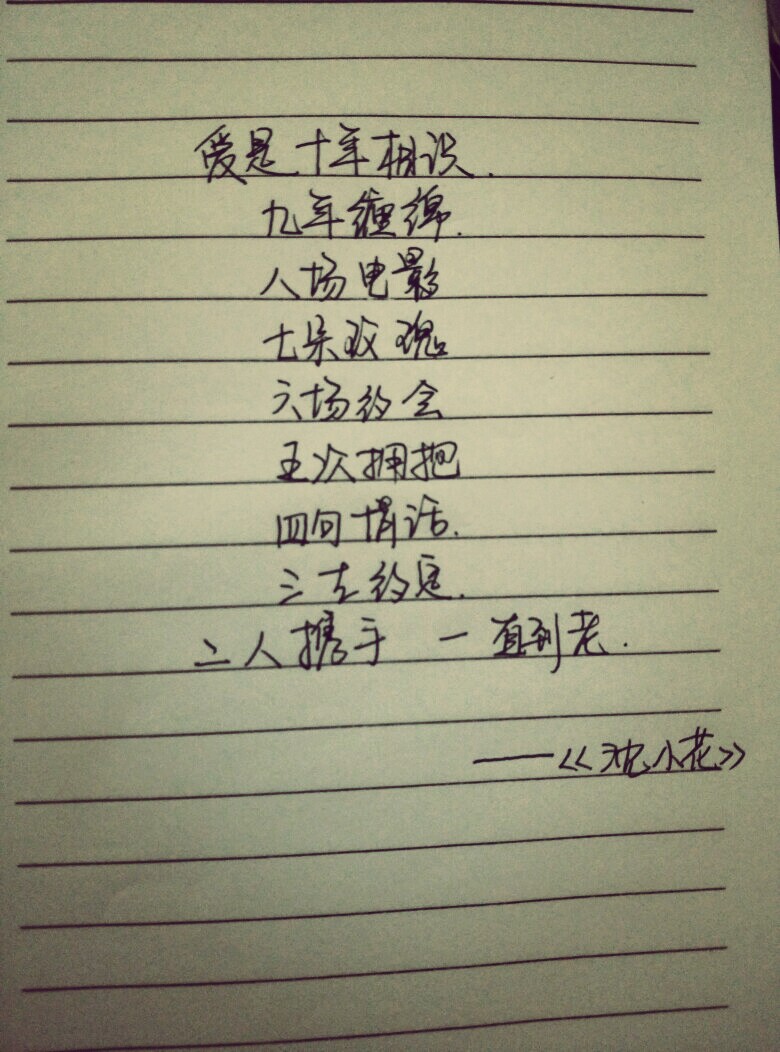 爱是十年相识.
九年缠绵.
八场电影
七朵玫瑰
六场约会
五次拥抱
四句情话.
三生约定.
二人携手 一直到老.
——《沈小花》